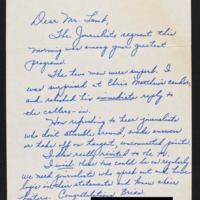 Dear Mr. Lamb,
The Journalists segment this
morning was among your greatest
programs.
The two men were superb. I
was surprised at Chris Matthews' candor,
and relished his immediate reply to
the callers-in.
How refreshing to hear journalists
who don't stumble around, evade answers
or take off on tangent, unconnected points.
I also really to
I wish these two could be on regularly.
we need journalists who speak out and take
logic in their statements and know their
history. Congratulations, Brian.